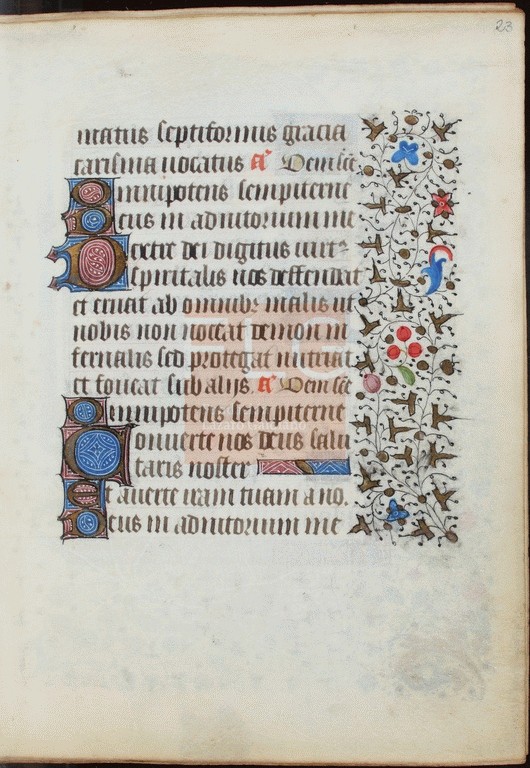 23
nitatus septiformis gracia
carisma uocatus a͛ Ueni sc̄e
Omnipotens sempiterne
Deus in adiutorium me
Dextre dei digitus uirt⁹
spiritalis nos deffendat
et eruat ab omnib⁹ malis ut
nobis non noceat demon in
fernalis sed protegat nutriat
et foueat sub alijs. a͛ Ueni sc̄e
Omnipotens sempiterne
Conuerte nos deus salu
taris noster
Et auerte iram tuam a no.
Deus in adiutorium me